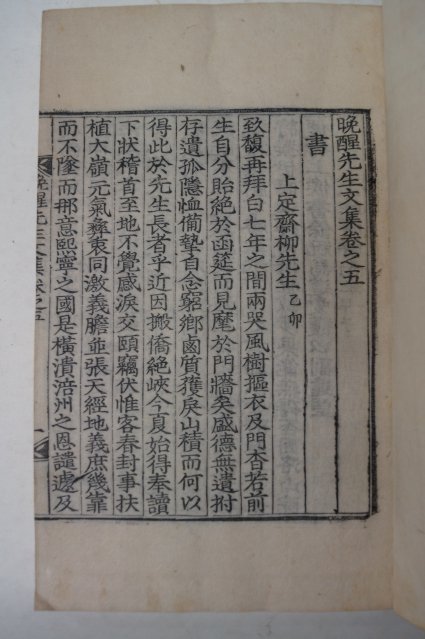 晩醒先生文集卷之五
書
上定齋柳先生 乙卯
致馥再拜白七年之間兩哭風樹摳衣及門杳若前
生自分貽絶於函筵而見麾於門牆矣盛德無遺拊
存遺孤隱恤備摯自念窮鄉鹵質獲戾山積而何以
得此於先生長者乎近因搬僑絶峽今夏始得奉讀
下狀稽首至地不覺感淚交頤竊伏惟客春封事扶
植大嶺元氣彛衷同激義膽並張天經地義庶幾靠
而不墜而那意熙寧之國是橫潰涪州之恩譴遽及
晩醒先生文集卷之五 一